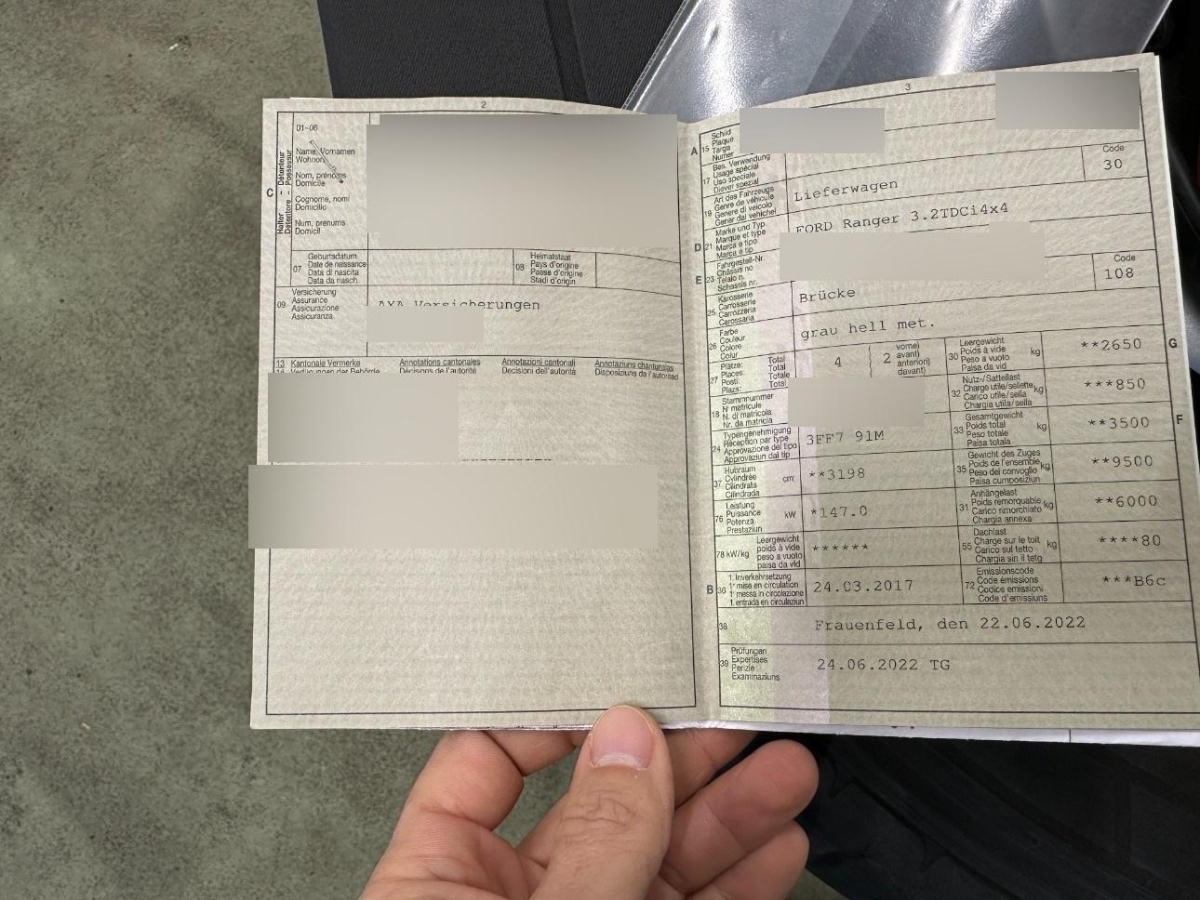 2
01-06
C
Halter - Détenteur
Detentore - Possessur
Name, Vornamen
Wohnort
Nom, prénoms
Domicile
Cognome, nomi
Domicilio
Num, prenums
Domicil
07
Geburtsdatum
Date de naissance
Data di nascita
Data da nasch.
08
Heimatstaat
Pays d'origine
Paese d'origine
Stadi d'origin
09
Versicherung
Assurance
Assicurazione
Assicuranza
AXA Versicherungen
13
Kantonale Vermerke
Annotations cantonales
Annotazioni cantonali
Annotaziuns chantunalas
Verfügungen der Behörde
Décisions de l'autorité
Decisioni dell'autorità
Disposiziuns da l'autoritad
3
A
15
Schild
Plaque
Targa
Numer
17
Bes. Verwendung
Usage spécial
Uso speciale
Diever spezial
19
Art des Fahrzeugs
Genre de véhicule
Genere di veicolo
Gener dal vehichel
Lieferwagen
Code
30
D
21
Marke und Typ
Marque et type
Marca e tipo
Marca e tip
FORD Ranger 3.2TDCi4x4
E
23
Fahrgestell-Nr.
Châssis no
Telaio n.
Schassis nr.
25
Karosserie
Carrosserie
Carrozzeria
Carossaria
Brücke
Code
108
26
Farbe
Couleur
Colore
Colur
grau hell met.
27
Plätze: Total
Places: Total
Posti: Totale
Plazs: Total
4
2
vorne)
avant)
anteriori)
davant)
30
Leergewicht
Poids à vide
Peso a vuoto
Paisa da vid
kg
**2650
G
18
Stammnummer
N matricule
N. di matricola
Nr. da matricla
32
Nutz-/Sattellast
Charge utile/sellette
Carico utile/sella
Chargia utila/sella
kg
***850
24
Typengenehmigung
Réception par type
Approvazione del tipo
Approvaziun dal tip
3FF7 91M
33
Gesamtgewicht
Poids total
Peso totale
Paisa totala
kg
**3500
F
37
Hubraum
Cylindrée
Cilindrata
Cilindrada
cm³
**3198
35
Gewicht des Zuges
Poids de l'ensemble
Peso del convoglio
Paisa cumposiziun
kg
**9500
76
Leistung
Puissance
Potenza
Prestaziun
kW
*147.0
31
Anhängelast
Poids remorquable
Carico rimorchiato
Chargia annexa
kg
**6000
78 kW/kg
Leergewicht
poids à vide
peso a vuoto
paisa da vid
******
55
Dachlast
Charge sur le toit
Carico sul tetto
Chargia sin il tetg
kg
****80
B
36
1. Inverkehrsetzung
1re mise en circulation
1a messa in circolazione
1. entrada en circulaziun
24.03.2017
72
Emissionscode
Code émissions
Codice emissioni
Code d'emissiuns
***B6c
38
Frauenfeld, den 22.06.2022
39
Prüfungen
Expertises
Perizie
Examinaziuns
24.06.2022 TG